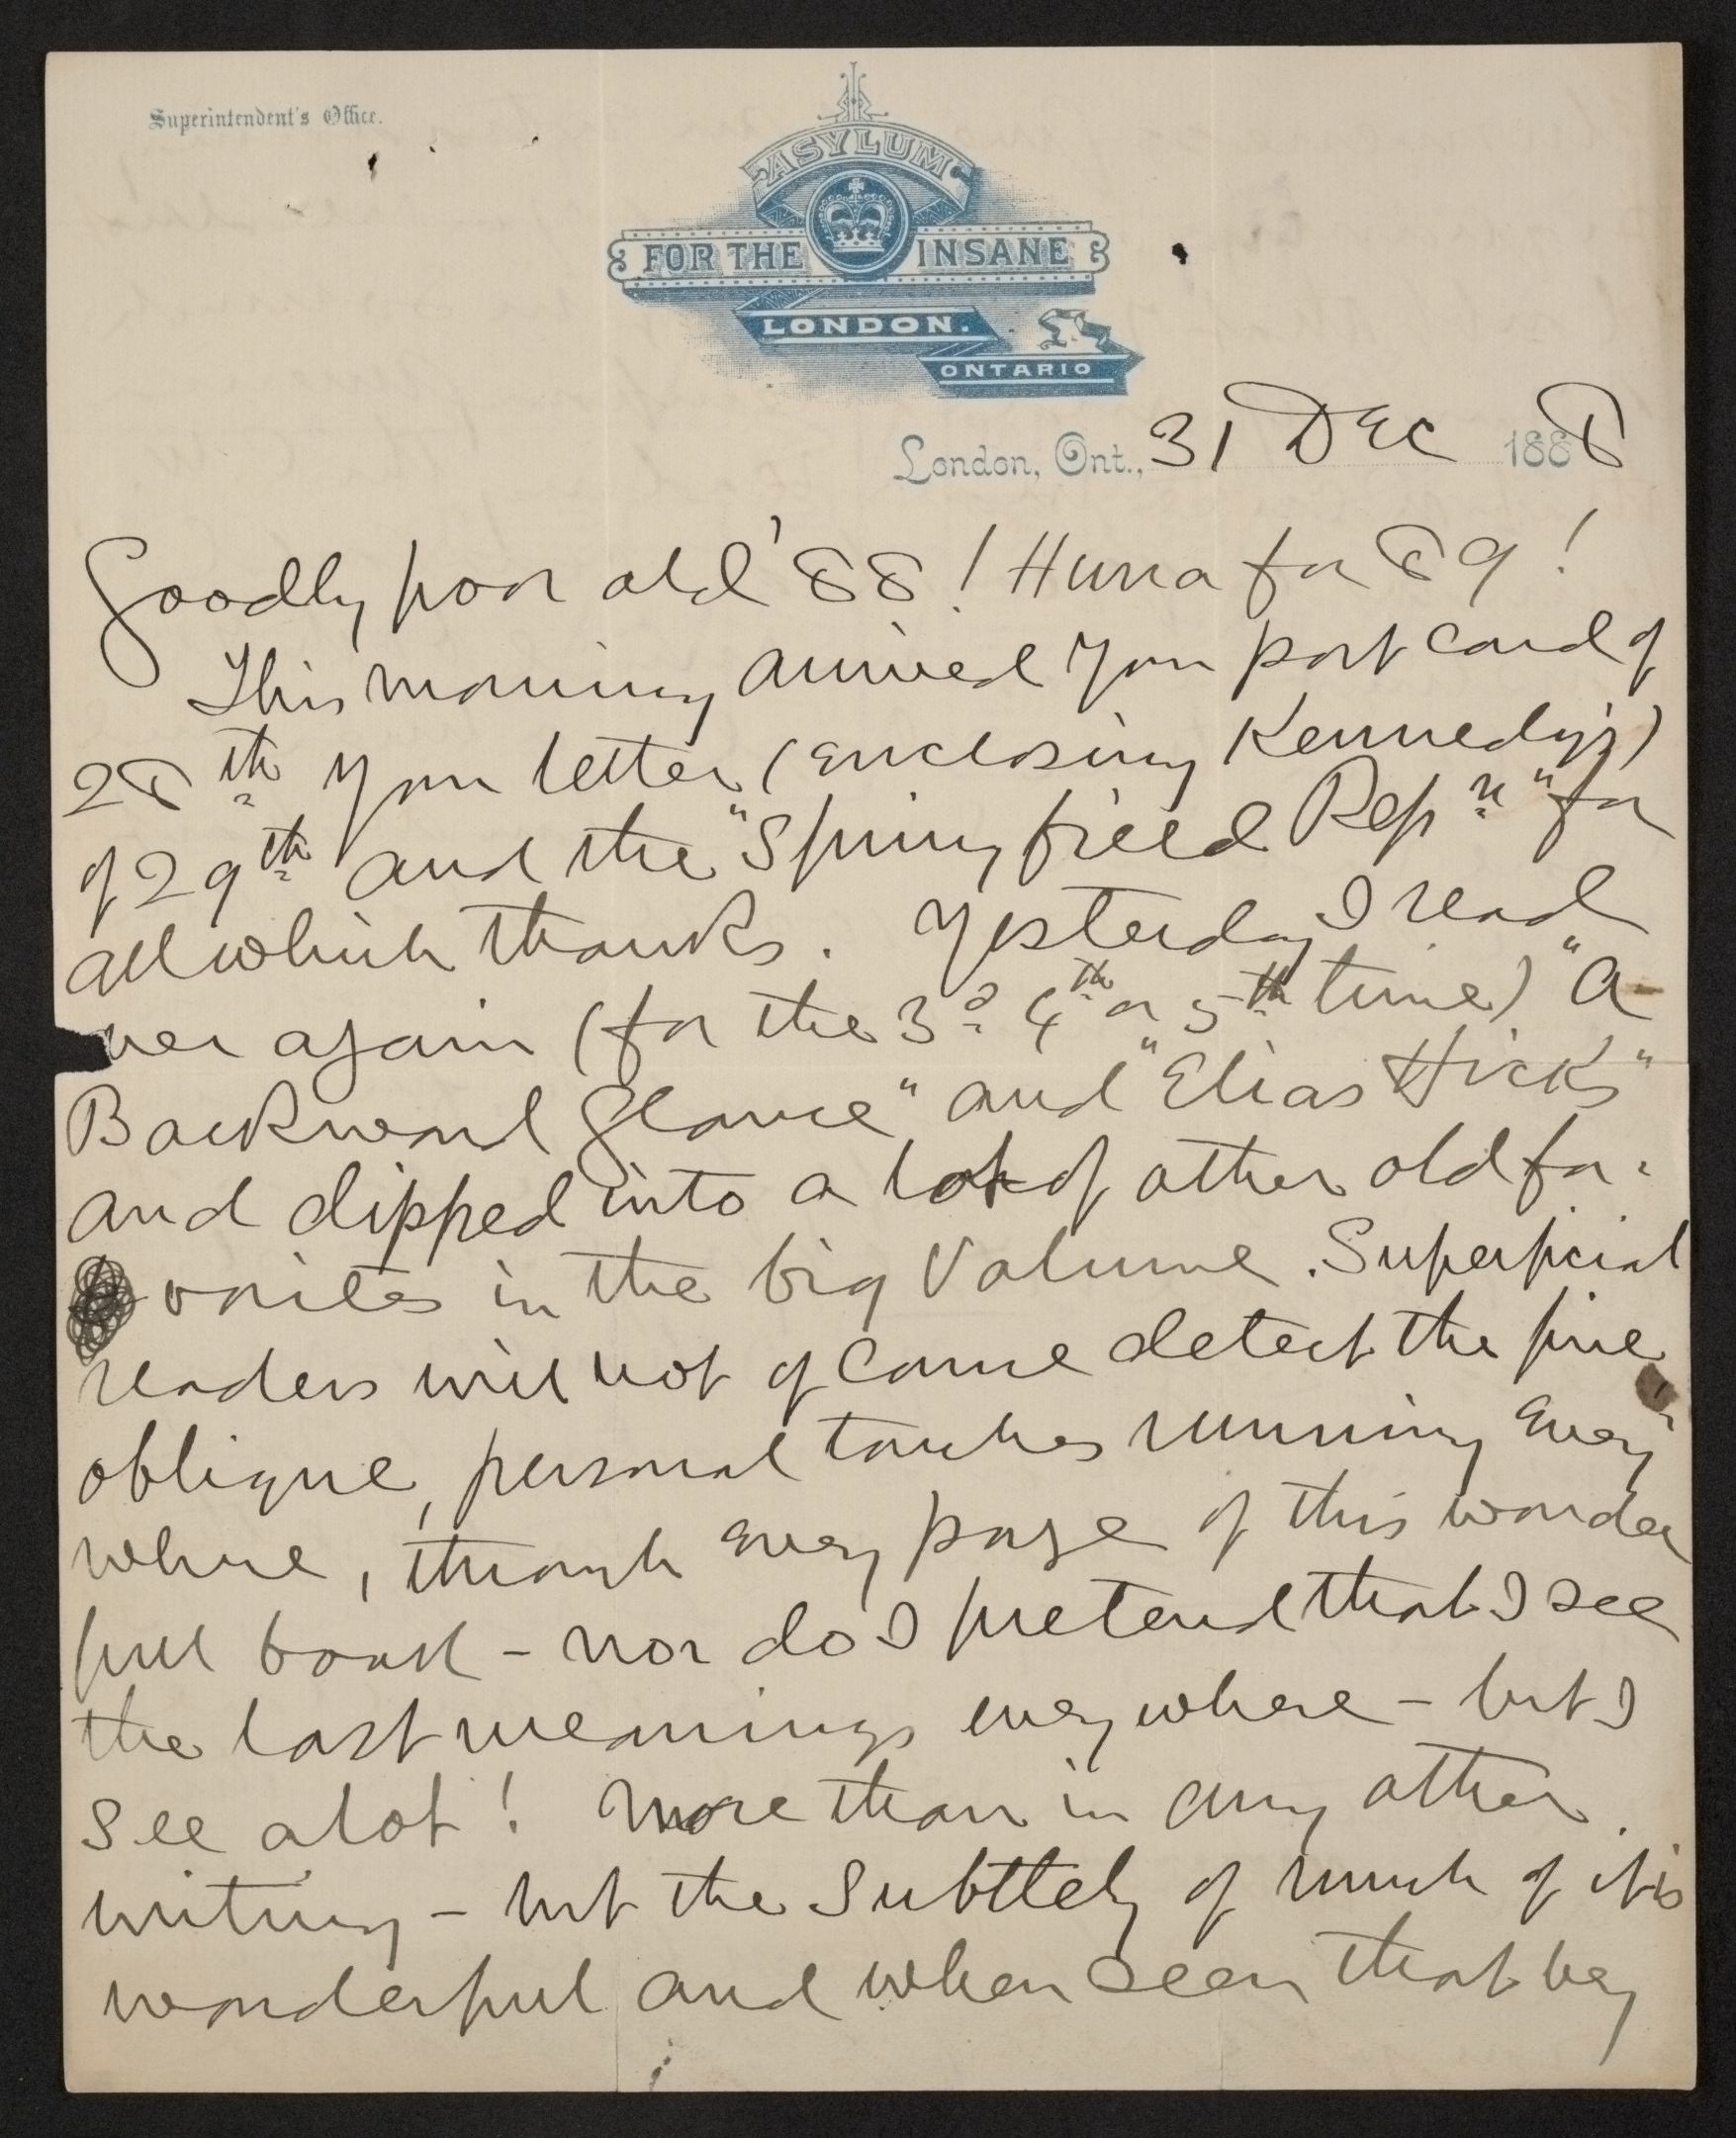 Superintendent's Office.
ASYLUM
FOR THE INSANE
LONDON.
ONTARIO
London, Ont., 31 Dec 1888
Goodby poor old '88! Hurra for 89!
This morning arrived your post card of
28th your letter (enclosing Kennedy's)
of 29th and the "Springfield Repn" for
all which thanks. Yesterday I read
over again (for the 3d 4th or 5th time) "A
Backward Glance" and "Elias Hicks"
and dipped into a lot of other old fa-
vorites in the big Volume. Superficial
readers will not of course detect the fine
oblique, personal touches running every
where, through every page of this wonder
full book - nor do I pretend that I see
the last meanings everywhere - but I
see a lot! More than in any other
writing - but the subttely of much of it is
wonderful and when seen that very